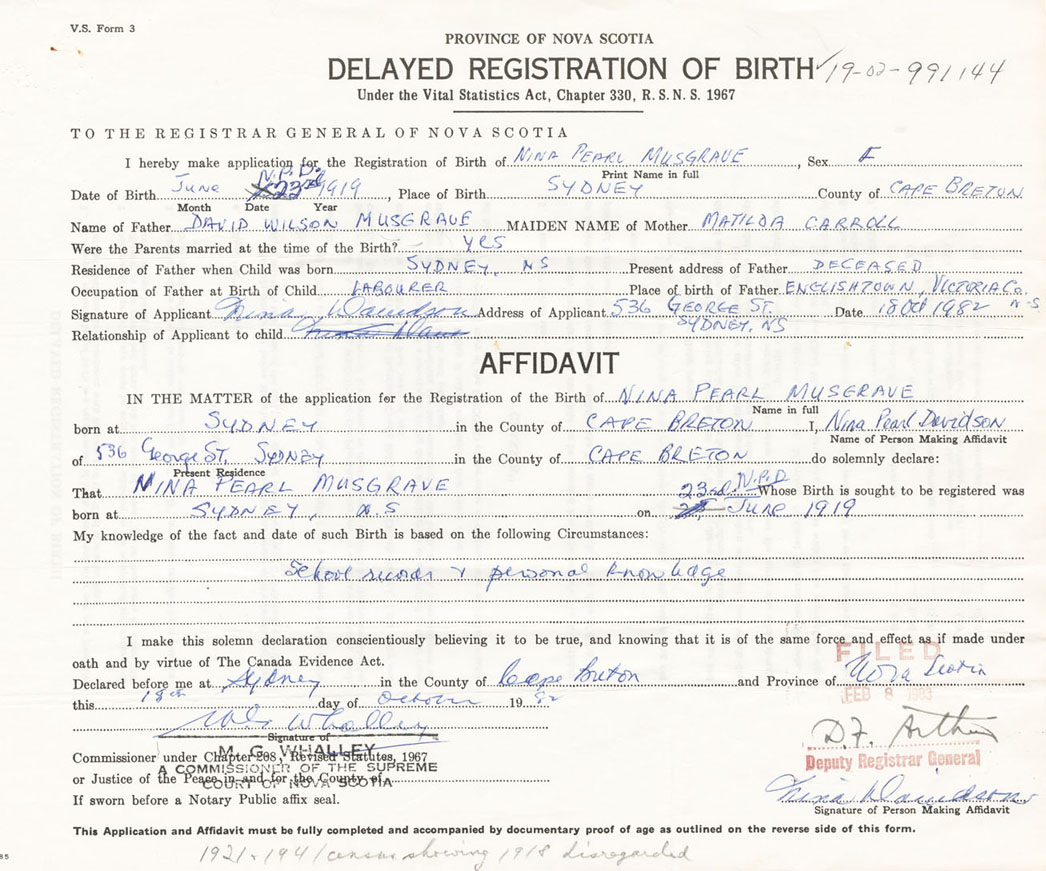 V.S. Form 3
PROVINCE OF NOVA SCOTIA
DELAYED REGISTRATION OF BIRTH ✓19-02-991144
Under the Vital Statistics Act, Chapter 330, R.S.N.S. 1967
TO THE REGISTRAR GENERAL OF NOVA SCOTIA
I hereby make application for the Registration of Birth of NINA PEARL MUSGRAVE, Sex F
Print Name in full
N.P.D.
Date of Birth June 23rd 1919, Place of Birth SYDNEY County of CAPE BRETON
Month Date Year
Name of Father DAVID WILSON MUSGRAVE MAIDEN NAME of Mother MATILDA CARROLL
Were the Parents married at the time of the Birth? YES
Residence of Father when Child was born SYDNEY, NS Present address of Father DECEASED
Occupation of Father at Birth of Child LABOURER Place of birth of Father ENGLISHTOWN, VICTORIA Co. N-S
Signature of Applicant Nina Davidson Address of Applicant 536 GEORGE ST. Date 18 Oct 1982
SYDNEY, NS
Relationship of Applicant to child
AFFIDAVIT
IN THE MATTER of the application for the Registration of the Birth of NINA PEARL MUSGRAVE
Name in full
born at SYDNEY in the County of CAPE BRETON I, Nina Pearl Davidson
Name of Person Making Affidavit
of 536 George ST. SYDNEY in the County of CAPE BRETON do solemnly declare:
Present Residence
That NINA PEARL MUSGRAVE 23rd N.P.D Whose Birth is sought to be registered was
born at SYDNEY, N.S on June 1919
My knowledge of the fact and date of such Birth is based on the following Circumstances:
School records & personal knowledge
I make this solemn declaration conscientiously believing it to be true, and knowing that it is of the same force and effect as if made under
oath and by virtue of The Canada Evidence Act.
FILED
Declared before me at Sydney in the County of Cape Breton and Province of Nova Scotia
FEB 8 1983
this 18th day of October 1982
Whalley
Signature of
M. G. WHALLEY
Commissioner under Chapter 208, Revised Statutes, 1967
A COMMISSIONER OF THE SUPREME
or Justice of the Peace in and for the County of
COURT OF NOVA SCOTIA
D.F. Arthur
Deputy Registrar General
If sworn before a Notary Public affix seal.
Nina Davidson
Signature of Person Making Affidavit
This Application and Affidavit must be fully completed and accompanied by documentary proof of age as outlined on the reverse side of this form.
1921 & 1941 census showing 1918 disregarded
85